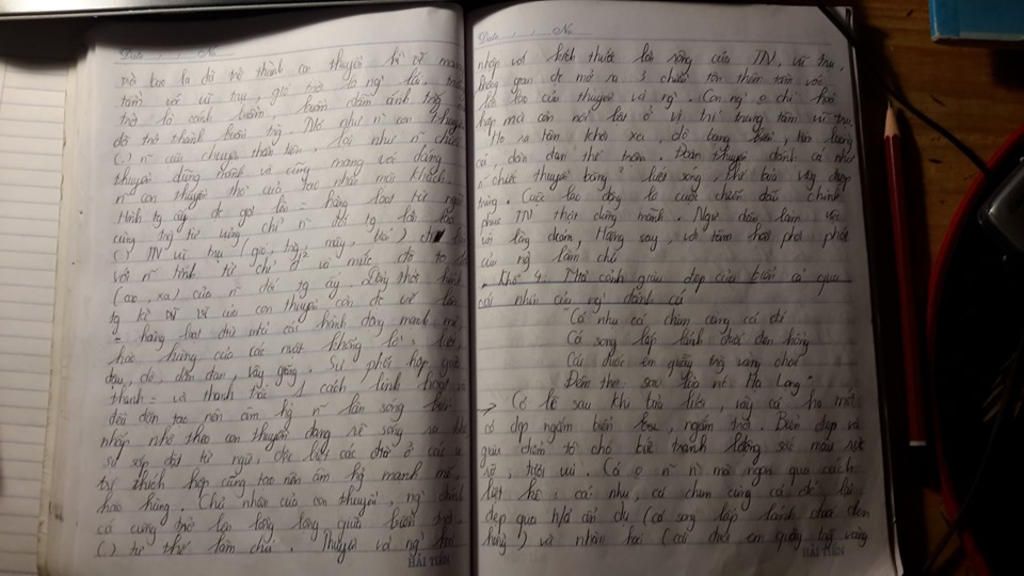 Date / / No
và tạo ra đã trở thành con thuyền kì vĩ mang
tầm vóc vũ trụ, gió trở là ng' lái, trăng
trở là cánh buồm, buồm đẫm ánh trăng
đã trở thành buồm trăng. Nó như n~ con thuyền
(.) n~ câu chuyện thần tiên, lại như n~ chiến
thuyền dũng mãnh và cũng mang vóc dáng
n~ con thuyền thơ của tao nhân mặc khách.
Hình tg ấy đc gợi lên = hàng loạt từ ngữ
cùng trg từ vựng chỉ n~ đối tg lớn lao
(.) TN vũ trụ (gió, trăng, mây, biển) cho
với n~ tính từ chỉ về mức độ to lớn
(cao, xa) của n~ đối tg ấy. Đồng thời hình
tg kì vĩ về của con thuyền còn đc vẽ lên
= hàng loạt chi tiết các hành động mạnh mẽ,
hào hứng của các nét khổng lồ: lưới,
đậu, dò, dàn đan, vây giăng. Sự phối hợp giữa
thanh = và thanh trắc 1 cách linh hoạt và
đều đặn tạo nên âm hg n~ làn sóng biển
nhấp nhô theo con thuyền đang rẽ sóng ra khơi
sự sắp đặt từ ngữ, đặc biệt các đtừ ở các vị
trí thích hợp cũng tạo nên âm hg mạnh mẽ,
hào hùng. Chủ nhân của con thuyền, ng' đánh
cá cũng trở lên lồng lộng giữa biển trời
(.) tư thế làm chủ. Thuyền và ng' hòa
HẢI TIẾN
Date / / No
nhập với kích thước lớn rộng của TN, vũ trụ,
không gian đc mở ra 3 chiều tôn thêm tầm vóc
lớn lao của thuyền và ng'. Con ng' o chỉ hòa
hợp mà còn nổi bật ở vị trí trung tâm vũ trụ.
Họ ra tận khơi xa, dò bụng biển, tìm luồng
cá, dàn đan thế trận. Đoàn thuyền đánh cá như
n~ chiếc thuyền băng lướt sóng, thế bủa vây điệp
trùng. Cuộc lao động là cuộc chiến đấu chinh
phục TN thật dũng mãnh. Ngư dân làm việc
với lòng dũng cảm, hăng say, với tâm hồn phơi phới
của ng' làm chủ
* Khổ 4: Một cảnh giàu đẹp của biển cả qua
cái nhìn của ng' đánh cá
"Cá nhụ cá chim cùng cá đé
Cá song lấp lánh đuốc đen hồng
Cái đuôi em quẫy trăng vàng chóe
Đêm thở: sao lùa nước Hạ Long"
-> Có lẽ sau khi bủa lưới, vây cá, họ mới
có dịp ngắm biển trời, ngắm trăng. Biển đẹp và
giàu điểm tô cho bức tranh lđộng sắc màu rực
rỡ, tươi vui. Cá o n~ n~ mà ngon qua cách
liệt kê: cá nhụ, cá chim cùng cá đé lại
đẹp qua h/ả ẩn dụ (cá song lấp lánh đuốc đen
hồng) và nhân hóa (cái đuôi em quẫy trăng vàng
HẢI TIẾN